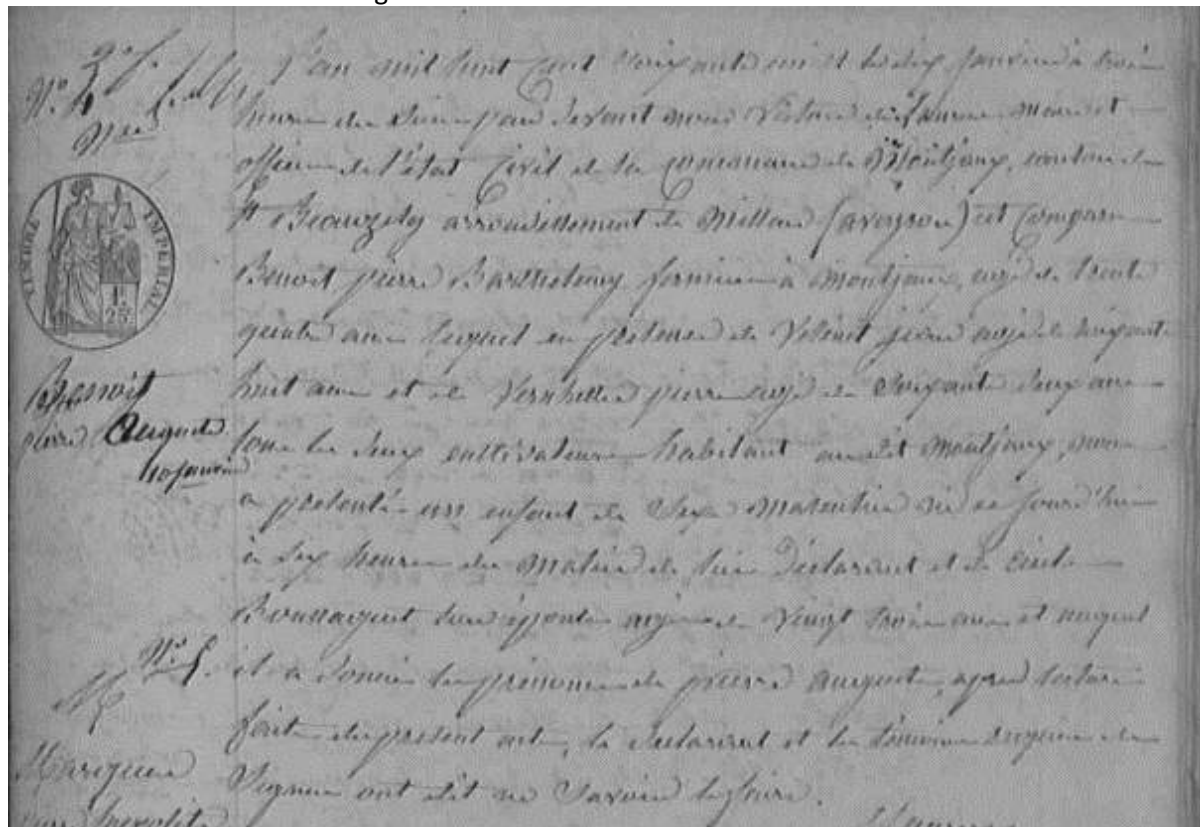 N° 4
Nce
TIMBRE IMPÉRIAL
1F 25C
Benoit
pierre Auguste
10 janvier
L'an mil huit cent soixante et le dix janvier à trois
heures du soir par devant nous maire et
officier de l'état civil de la commune de Montjaux, canton de
St Beauzely arrondissement de Millau (aveyron) est comparu
Benoit pierre Barthelemy fermier à Montjaux, agé de trente
quatre ans lequel en présence de jean agé de soixante
huit ans et de pierre agé de soixante deux ans
tous les deux cultivateurs habitant audit Montjaux, nous
a présenté un enfant de sexe masculin né ce jourd'hui
à six heures du matin de lui déclarant et de
Boussaguet son épouse agée de vingt trois ans et auquel
il a donné les prénoms de pierre auguste, après lecture
faite du présent acte, le déclarant et les témoins requis de
signer ont dit ne savoir le faire.
N° 5.